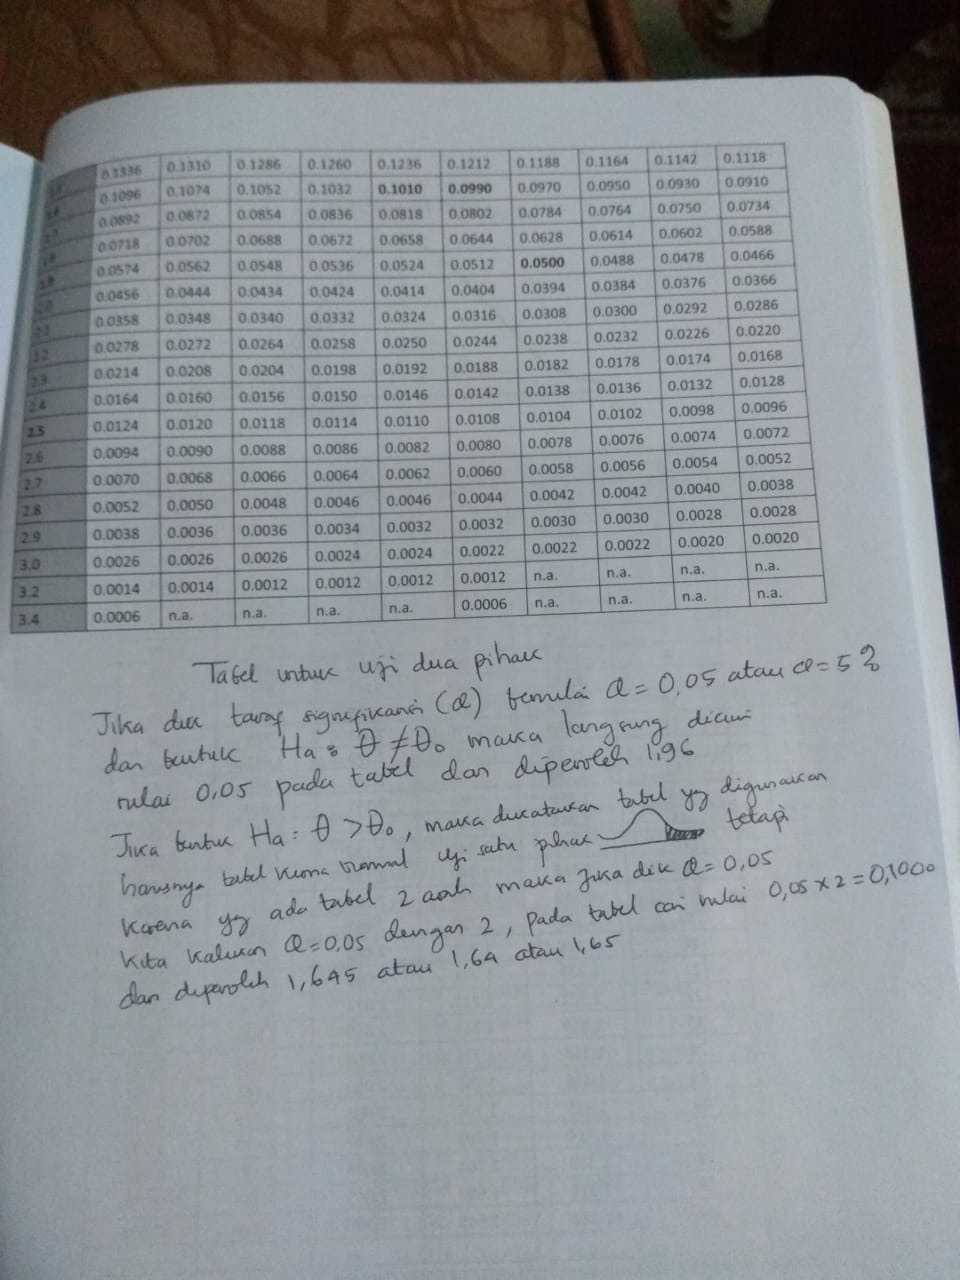 1.5 0.1336 0.1310 0.1286 0.1260 0.1236 0.1212 0.1188 0.1164 0.1142 0.1118
1.6 0.1096 0.1074 0.1052 0.1032 0.1010 0.0990 0.0970 0.0950 0.0930 0.0910
1.7 0.0892 0.0872 0.0854 0.0836 0.0818 0.0802 0.0784 0.0764 0.0750 0.0734
1.8 0.0718 0.0702 0.0688 0.0672 0.0658 0.0644 0.0628 0.0614 0.0602 0.0588
1.9 0.0574 0.0562 0.0548 0.0536 0.0524 0.0512 0.0500 0.0488 0.0478 0.0466
2.0 0.0456 0.0444 0.0434 0.0424 0.0414 0.0404 0.0394 0.0384 0.0376 0.0366
2.1 0.0358 0.0348 0.0340 0.0332 0.0324 0.0316 0.0308 0.0300 0.0292 0.0286
2.2 0.0278 0.0272 0.0264 0.0258 0.0250 0.0244 0.0238 0.0232 0.0226 0.0220
2.3 0.0214 0.0208 0.0204 0.0198 0.0192 0.0188 0.0182 0.0178 0.0174 0.0168
2.4 0.0164 0.0160 0.0156 0.0150 0.0146 0.0142 0.0138 0.0136 0.0132 0.0128
2.5 0.0124 0.0120 0.0118 0.0114 0.0110 0.0108 0.0104 0.0102 0.0098 0.0096
2.6 0.0094 0.0090 0.0088 0.0086 0.0082 0.0080 0.0078 0.0076 0.0074 0.0072
2.7 0.0070 0.0068 0.0066 0.0064 0.0062 0.0060 0.0058 0.0056 0.0054 0.0052
2.8 0.0052 0.0050 0.0048 0.0046 0.0046 0.0044 0.0042 0.0042 0.0040 0.0038
2.9 0.0038 0.0036 0.0036 0.0034 0.0032 0.0032 0.0030 0.0030 0.0028 0.0028
3.0 0.0026 0.0026 0.0026 0.0024 0.0024 0.0022 0.0022 0.0022 0.0020 0.0020
3.2 0.0014 0.0014 0.0012 0.0012 0.0012 0.0012 n.a. n.a. n.a. n.a.
3.4 0.0006 n.a. n.a. n.a. n.a. 0.0006 n.a. n.a. n.a. n.a.
Tabel untuk uji dua pihak
Jika dik taraf signifikansi (α) bernilai α = 0,05 atau α = 5%
dan bentuk Ha : θ ≠ θ₀ maka langsung dicari
nilai 0,05 pada tabel dan diperoleh 1,96
Jika bentuk Ha : θ > θ₀, maka dikatakan tabel yg digunakan
harusnya tabel kurva normal uji satu pihak tetapi
karena yg ada tabel 2 arah maka jika dik α = 0,05
kita kalikan α = 0,05 dengan 2, pada tabel cari nilai 0,05 x 2 = 0,1000
dan diperoleh 1,645 atau 1,64 atau 1,65